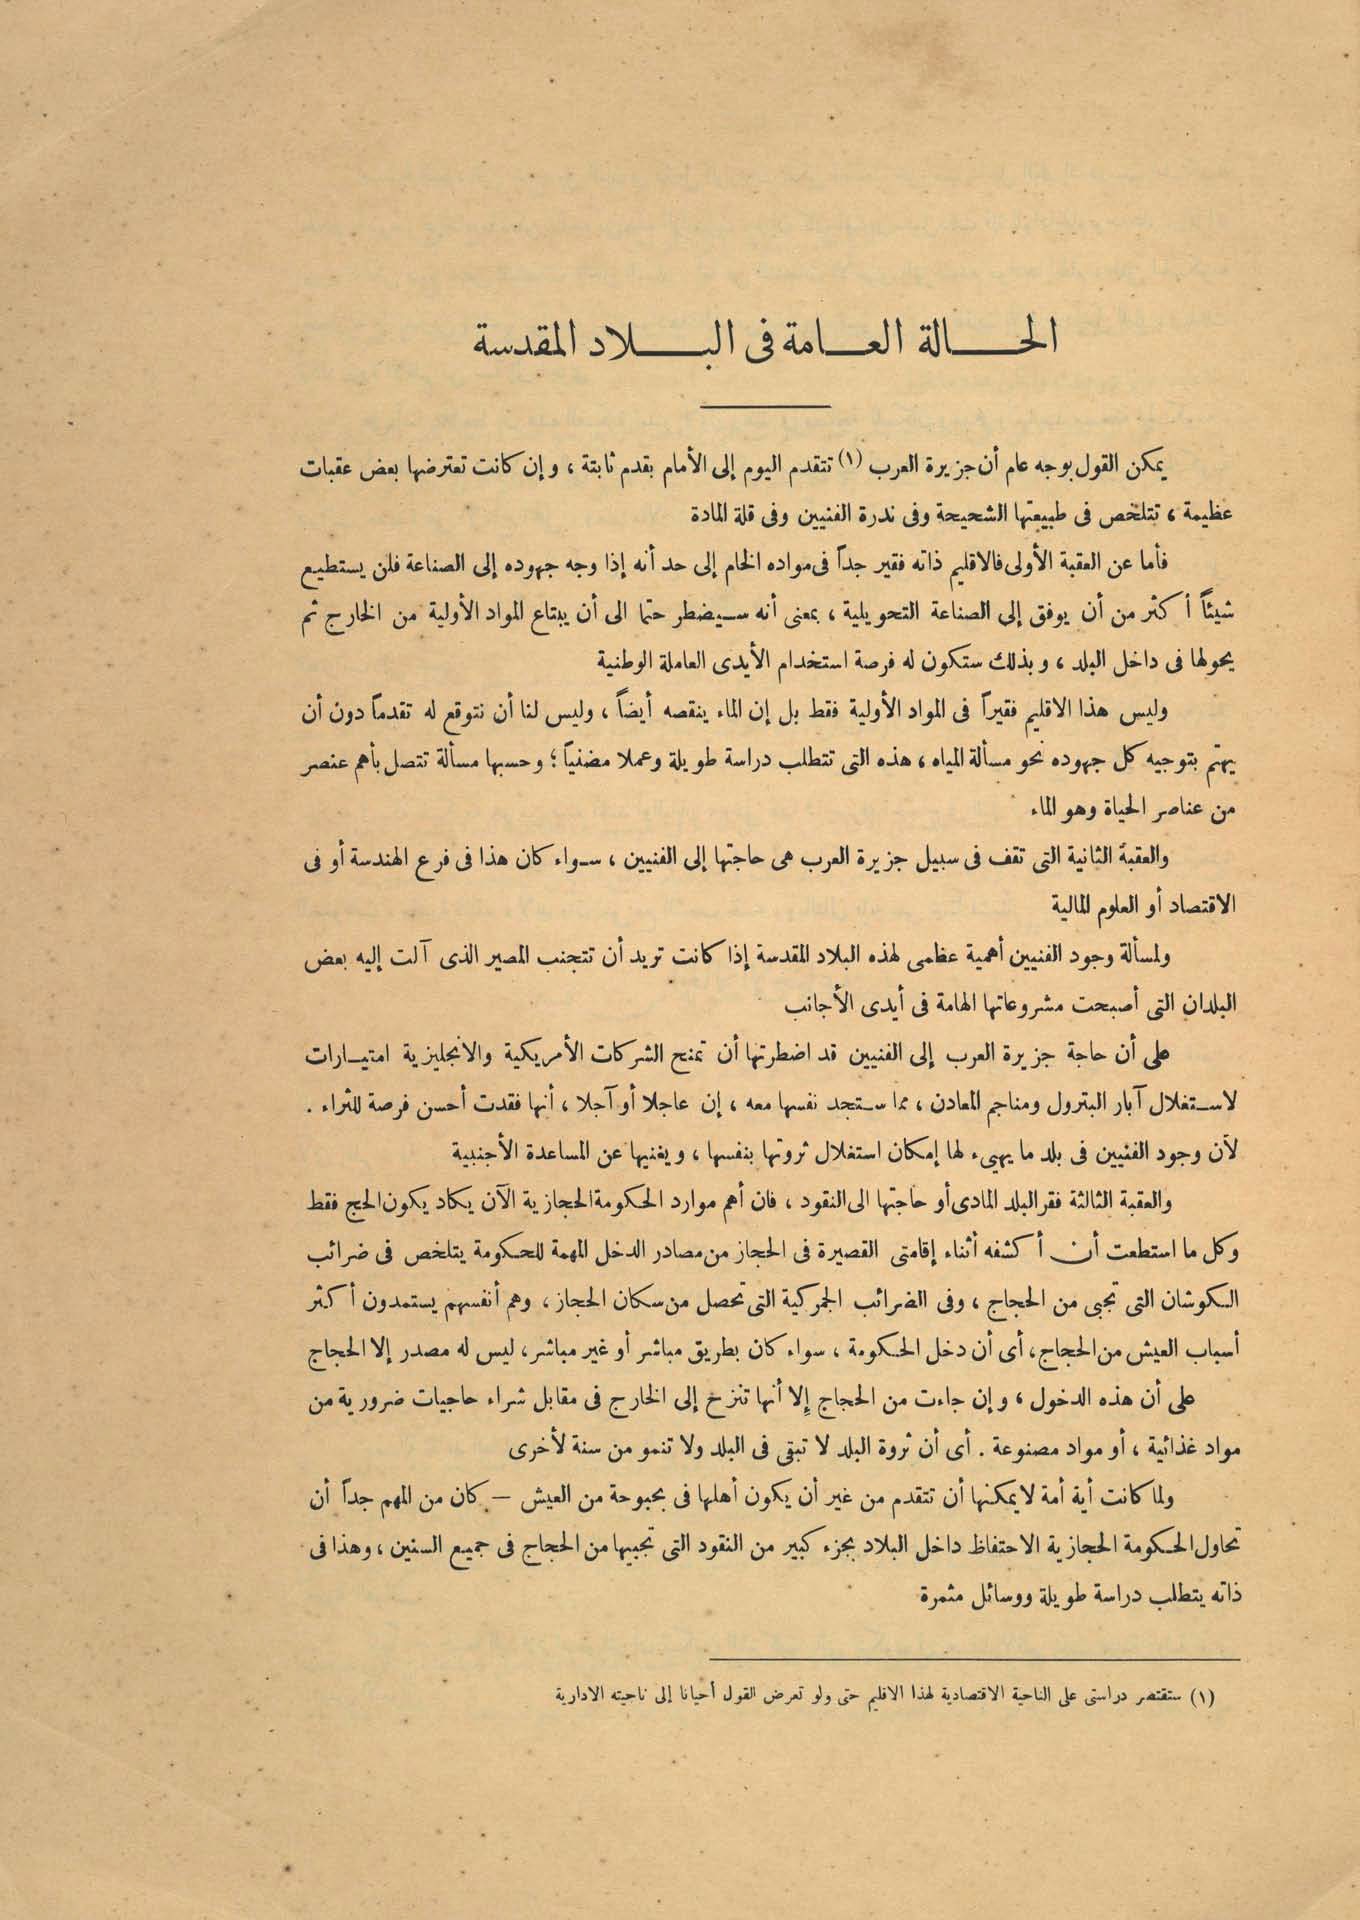 الحالة العامة فى البلاد المقدسة
يمكن القول بوجه عام أن جزيرة العرب (١) تتقدم اليوم إلى الأمام بقدم ثابتة ، وإن كانت تعترضها بعض عقبات
عظيمة ، تتلخص فى طبيعتها الشحيحة وفى ندرة الفنيين وفى قلة المادة
فأما عن العقبة الأولى فالاقليم ذاته فقير جداً فى مواده الخام إلى حد أنه إذا وجه جهوده إلى الصناعة فلن يستطيع
شيئاً أكثر من أن يوفق إلى الصناعة التحويلية ، بمعنى أنه سيضطر حتما الى أن يبتاع المواد الأولية من الخارج ثم
يحولها فى داخل البلد ، وبذلك ستكون له فرصة استخدام الأيدى العاملة الوطنية
وليس هذا الاقليم فقيراً فى المواد الأولية فقط بل إن الماء ينقصه أيضاً ، وليس لنا أن نتوقع له تقدماً دون أن
يهتم بتوجيه كل جهوده نحو مسألة المياه ، هذه التى تتطلب دراسة طويلة وعملا مضنياً ؛ وحسبها مسألة تتصل بأهم عنصر
من عناصر الحياة وهو الماء
والعقبة الثانية التى تقف فى سبيل جزيرة العرب هى حاجتها إلى الفنيين ، سواء كان هذا فى فرع الهندسة أو فى
الاقتصاد أو العلوم المالية
ولمسألة وجود الفنيين أهمية عظمى لهذه البلاد المقدسة إذا كانت تريد أن تتجنب المصير الذى آلت إليه بعض
البلدان التى أصبحت مشروعاتها الهامة فى أيدى الأجانب
على أن حاجة جزيرة العرب إلى الفنيين قد اضطرتها أن تمنح الشركات الأمريكية والانجليزية امتيارات
لاستغلال آبار البترول ومناجم المعادن ، مما ستجد نفسها معه ، إن عاجلا أو آجلا ، أنها فقدت أحسن فرصة للثراء .
لأن وجود الفنيين فى بلد ما يهيىء لها إمكان استغلال ثروتها بنفسها ، ويغنيها عن المساعدة الأجنبية
والعقبة الثالثة فقر البلد المادى أو حاجتها الى النقود ، فان أهم موارد الحكومة الحجازية الآن يكاد يكون الحج فقط
وكل ما استطعت أن أكشفه أثناء إقامتى القصيرة فى الحجاز من مصادر الدخل المهمة للحكومة يتلخص فى ضرائب
الكوشان التى تجبى من الحجاج ، وفى الضرائب الجمركية التى تحصل من سكان الحجاز ، وهم أنفسهم يستمدون أكثر
أسباب العيش من الحجاج ، أى أن دخل الحكومة ، سواء كان بطريق مباشر أو غير مباشر ، ليس له مصدر إلا الحجاج
على أن هذه الدخول ، وإن جاءت من الحجاج إلا أنها تنزح إلى الخارج فى مقابل شراء حاجيات ضرورية من
مواد غذائية ، أو مواد مصنوعة . أى أن ثروة البلد لا تبقى فى البلد ولا تنمو من سنة لأخرى
ولما كانت أية أمة لا يمكنها أن تتقدم من غير أن يكون أهلها فى بحبوحة من العيش — كان من المهم جداً أن
تحاول الحكومة الحجازية الاحتفاظ داخل البلاد بجزء كبير من النقود التى تجبيها من الحجاج فى جميع السنين ، وهذا فى
ذاته يتطلب دراسة طويلة ووسائل مثمرة
(١) ستقتصر دراستى على الناحية الاقتصادية لهذا الاقليم حتى ولو تعرض القول أحيانا إلى ناحيته الادارية